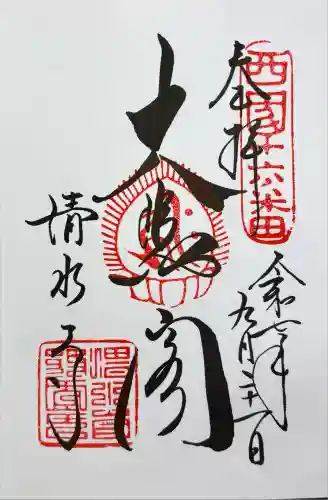 奉拝
西国十六番
令和七年九月二十一日
大悲閣
清水寺